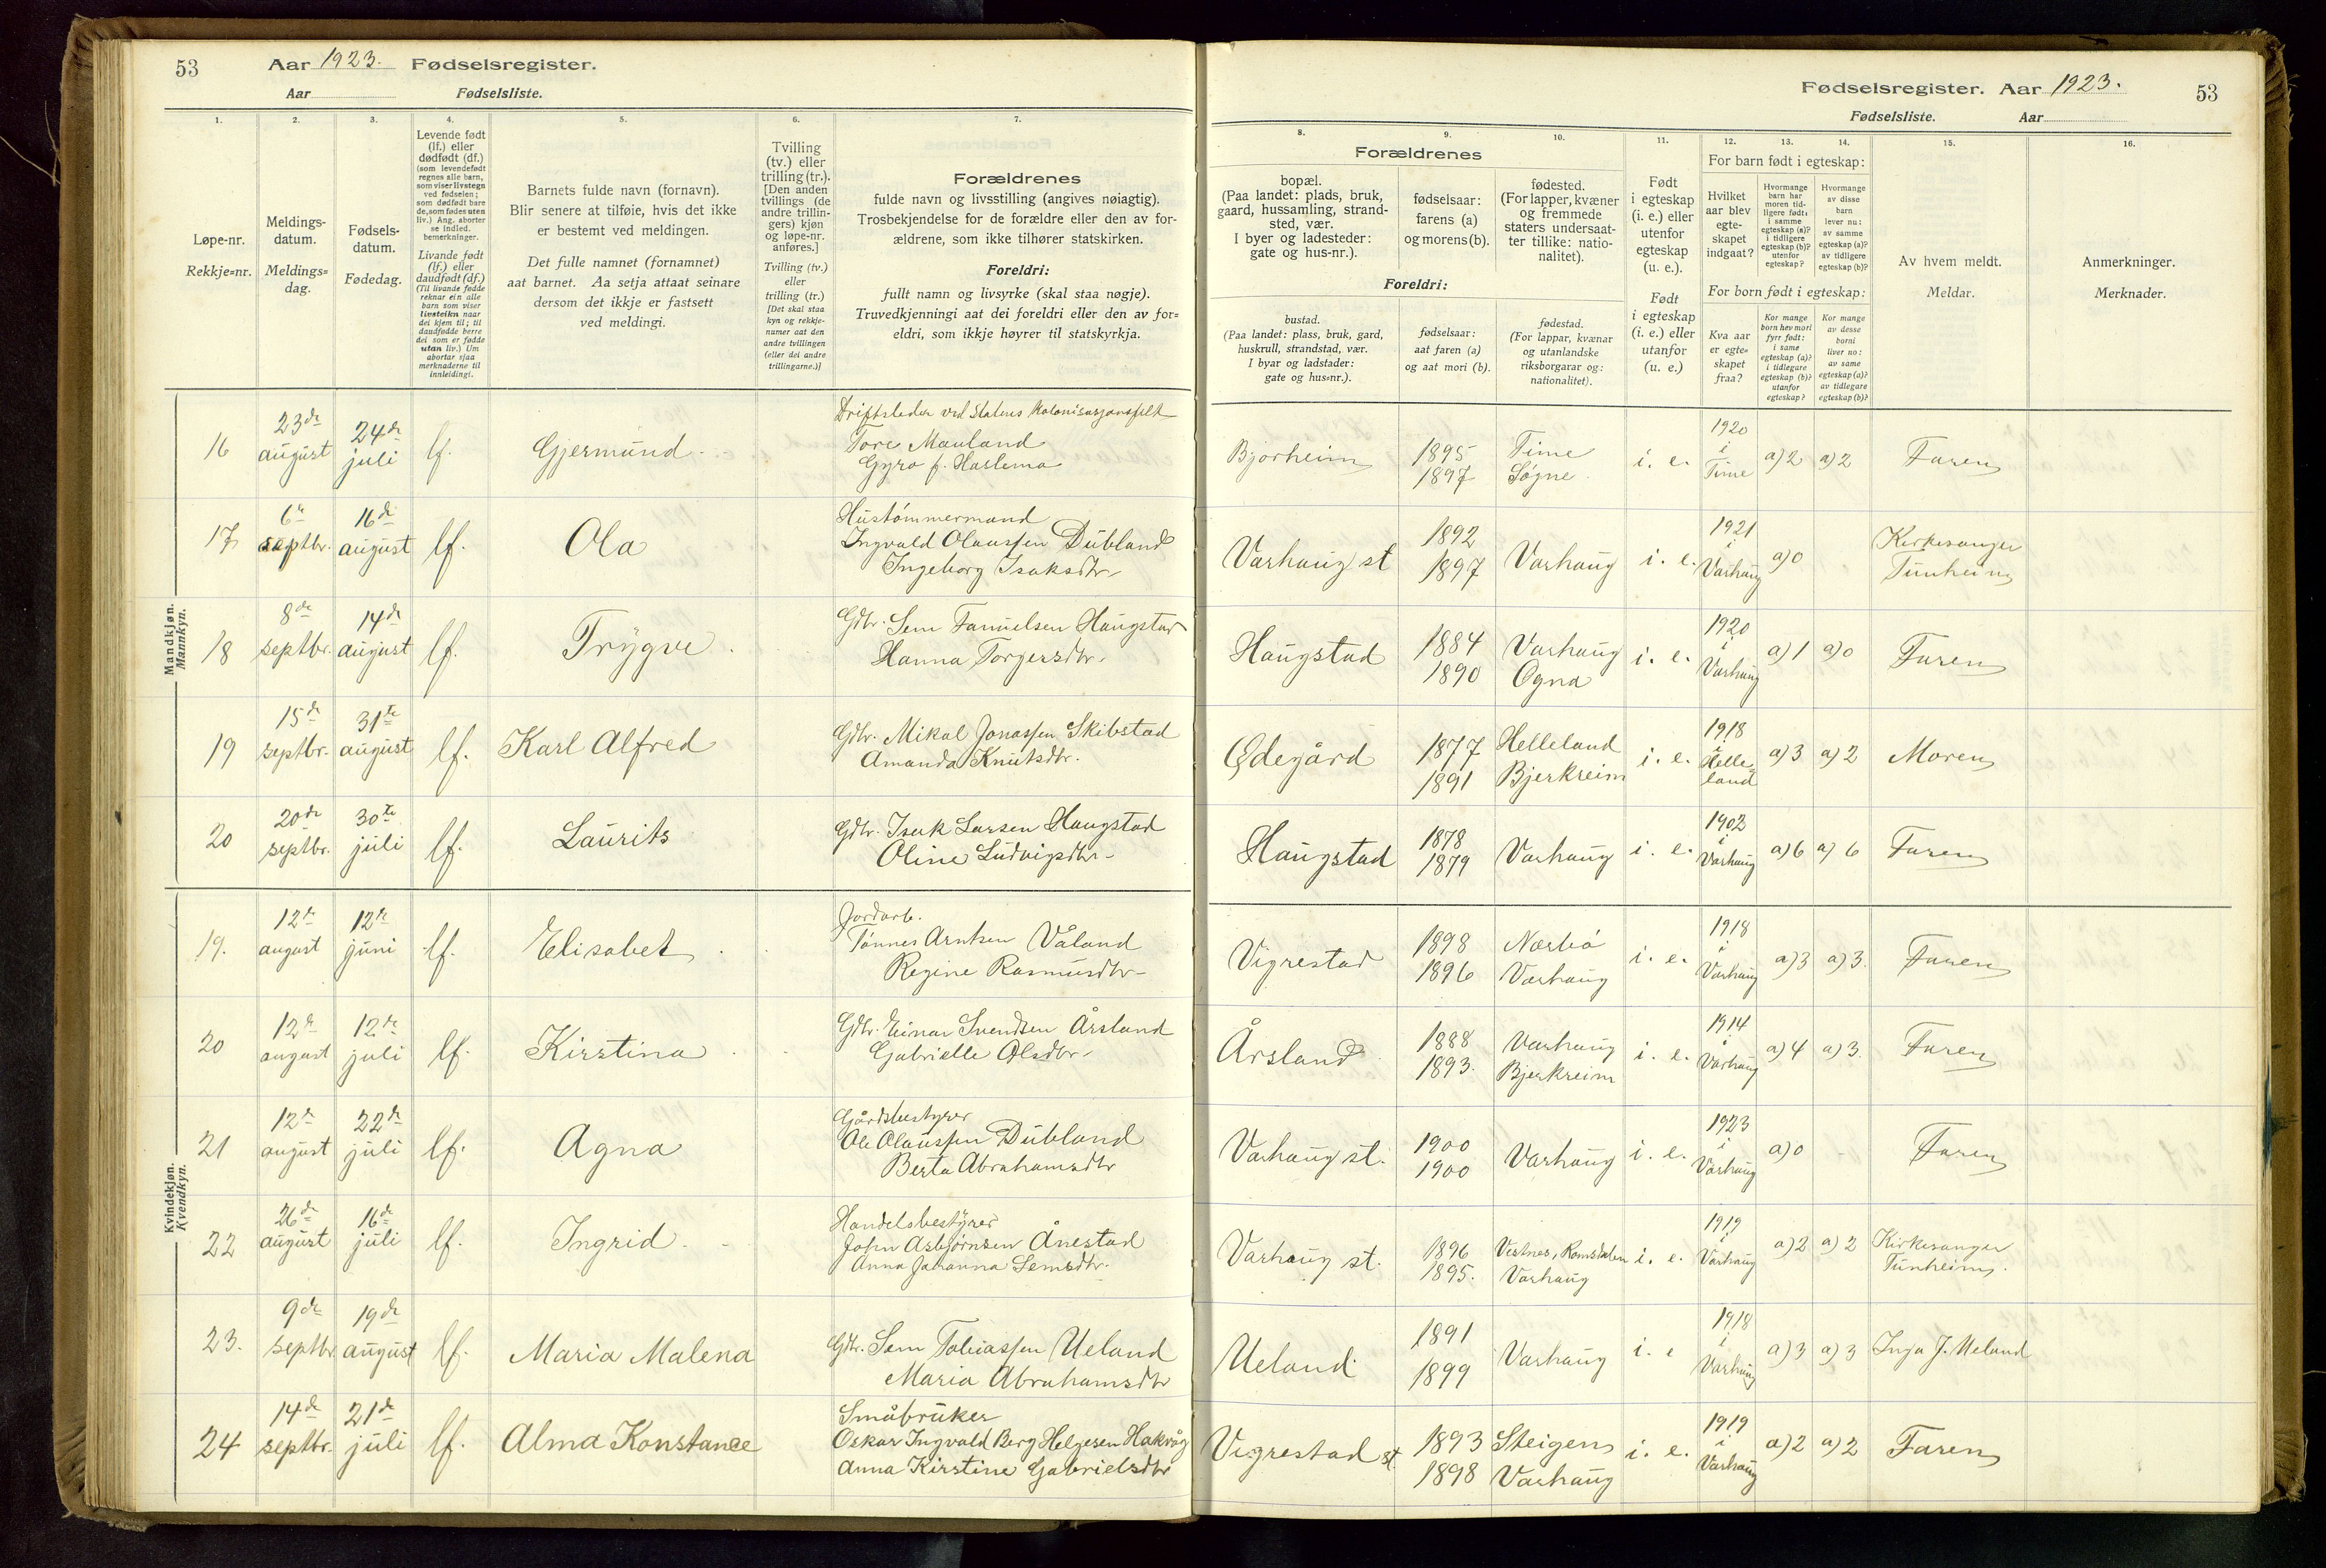 53 Aar 1923. Fødselsregister.
Aar Fødselsliste.
1. 2. 3. 4. 5. 6. 7.
Løpe-nr.
Rekkje=nr.
Meldings-
datum.
Meldings=
dag.
Fødsels-
datum.
Fødedag.
Levende født
(lf.) eller
dødfødt (df.)
(som levendefødt
regnes alle barn,
som viser livstegn
ved fødselen;
som dødfødt bare
de, som fødes uten
liv.) Ang. aborter
se indled.
bemerkninger.
Livande født
(lf.) eller
daudfødt (df.)
(Til livande fødde
reknar ein alle
barn som viser
livsteikn naar
dei kjem til; til
daudfødde berre
dei som er fødde
utan liv.) Um
abortar sjaa
merknaderne til
innleidingi.
Barnets fulde navn (fornavn).
Blir senere at tilføie, hvis det ikke
er bestemt ved meldingen.
Det fulle namnet (fornamnet)
aat barnet. Aa setja attaat seinare
dersom det ikkje er fastsett
ved meldingi.
Tvilling
(tv.) eller
trilling (tr.).
[Den anden
tvillings (de
andre trillin-
gers) kjøn
og løpe-nr.
anføres.]
Tvilling (tv.)
eller
trilling (tr.)
[Det skal staa
kyn og rekkje-
numer aat den
andre tvillingen
(eller dei andre
trillingarne.)]
Forældrenes
fulde navn og livsstilling (angives nøiagtig).
Trosbekjendelse for de forældre eller den av for-
ældrene, som ikke tilhører statskirken.
Foreldri:
fullt namn og livsyrke (skal staa nøgje).
Truvedkjenningi aat dei foreldri eller den av for=
eldri, som ikkje høyrer til statskyrkja.
Mandkjøn.
Mannkyn.
16 23de august 24de juli lf. Gjermund
Driftsleder ved Statens Kolonisasjonsfelt
Tore Mauland
Gyro f. Haslemo
17 6te septbr. 16de august lf. Ola
Hustømmermand
Ingvald Olaussen Dubland
Ingeborg Isaksdtr.
18 8de septbr. 14de august lf. Trygve
Gdbr. Sem Samuelsen Haugstad
Hanna Torgersdtr.
19 15de septbr. 31te august lf. Karl Alfred
Gdbr. Mikal Jonassen Skibstad
Amanda Knutsdtr.
20 20de septbr. 30te juli lf. Laurits
Gdbr. Isak Larsen Haugstad
Oline Ludvigsdtr.
Kvindekjøn.
Kvendkyn.
19. 12te august 12te juni lf. Elisabet
Jordarb.
Tønnes Arntsen Våland
Regine Rasmusdtr.
20 12te august 12te juli lf. Kirstina
Gdbr. Einar Svendsen Årsland
Gabrielle Olsdtr.
21 12te august 22de juli lf. Agna
Gårdsbestyrer
Ole Olaussen Dubland
Berta Abrahamsdtr
22 26de august 16de juli lf. Ingrid
Handelsbestyrer
John Asbjørnsen Ånestad
Anna Johanna Semsdtr.
23. 9de septbr 19de august lf. Maria Malena
Gdbr. Sem Tobiassen Ueland
Maria Abrahamsdtr
24 14de septbr. 21de juli lf. Alma Konstance
Småbruker
Oskar Ingvald Berg Helgesen Hakvåg
Anna Kirstine Gabrielsdtr
Fødselsregister. Aar 1923. 53
Fødselsliste. Aar
8. 9. 10. 11. 12. 13. 14. 15. 16.
Forældrenes
bopæl.
(Paa landet: plads, bruk,
gaard, hussamling, strand-
sted, vær.
I byer og ladesteder:
gate og hus-nr.).
fødselsaar:
farens (a)
og morens (b).
fødested.
(For lapper, kvæner
og fremmede
staters undersaat-
ter tillike: natio-
nalitet).
Foreldri:
bustad.
(Paa landet: plass, bruk, gard,
huskrull, strandstad, vær.
I byar og ladstader:
gate og hus=nr.).
fødselsaar:
aat faren (a)
og aat mori (b).
fødestad.
(For lappar, kvænar
og utanlandske
riksborgarar og:
nationalitet).
Født
i egteskap
(i. e.) eller
utenfor
egteskap
(u. e.).
Født
i egteskap
(i. e.) eller
utanfor
(u. e.)
For barn født i egteskap:
Hvilket
aar blev
egte-
skapet
indgaat?
Hvormange
barn har
moren tid-
ligere født:
i samme
egteskap (a)?
i tidligere
egteskap (b)?
utenfor
egteskap?
Hvormange
av disse
barn
lever nu:
av samme
egteskap (a)?
av tidligere
egteskap (b)?
For born født i egteskap:
Kva aar
er egte=
skapet
fraa?
Kor mange
born hev mori
fyrr født:
i same
egteskap (a)?
i tidlegare
egteskap (b)?
utanfor
egteskap?
Kor mange
av desse
borni
liver no:
av same
egteskap (a)?
av tidlegare
egteskap (b)?
Av hvem meldt.
Meldar.
Anmerkninger.
Merknader.
Bjorheim 1895 1897 Time Søgne i. e. 1920 i Time a) 2 a) 2 Faren
Varhaug st 1892 1897 Varhaug i. e. 1921 i Varhaug a) 0 Kirkesanger Tunheim
Haugstad 1884 1890 Varhaug Ogna i. e. 1920 i Varhaug a) 1 a) 0 Faren
Ødegård 1877 1891 Helleland Bjerkreim i. e. 1918 i Helleland a) 3 a) 2 Moren
Haugstad 1878 1879 Varhaug i. e. 1902 i Varhaug a) 6 a) 6 Faren
Vigrestad 1898 1896 Nærbø Varhaug i. e. 1918 i Varhaug a) 3 a) 3. Faren
Årsland 1888 1893. Varhaug Bjerkreim i. e. 1914 i Varhaug a) 4 a) 3. Faren
Varhaug st. 1900 1900 Varhaug i. e. 1923 i Varhaug a) 0 - Faren
Varhaug st. 1896 1895. Vestnes, Romsdalen Varhaug i. e. 1919 i Varhaug a) 2 a) 2 Kirkesanger Tunheim.
Ueland 1891 1899 Varhaug i. e 1918 i Varhaug a) 3 a) 3 Inga J. Ueland
Vigrestad st. 1893 1898 Steigen Varhaug i. e. 1919 i Varhaug a) 2 a) 2 Faren